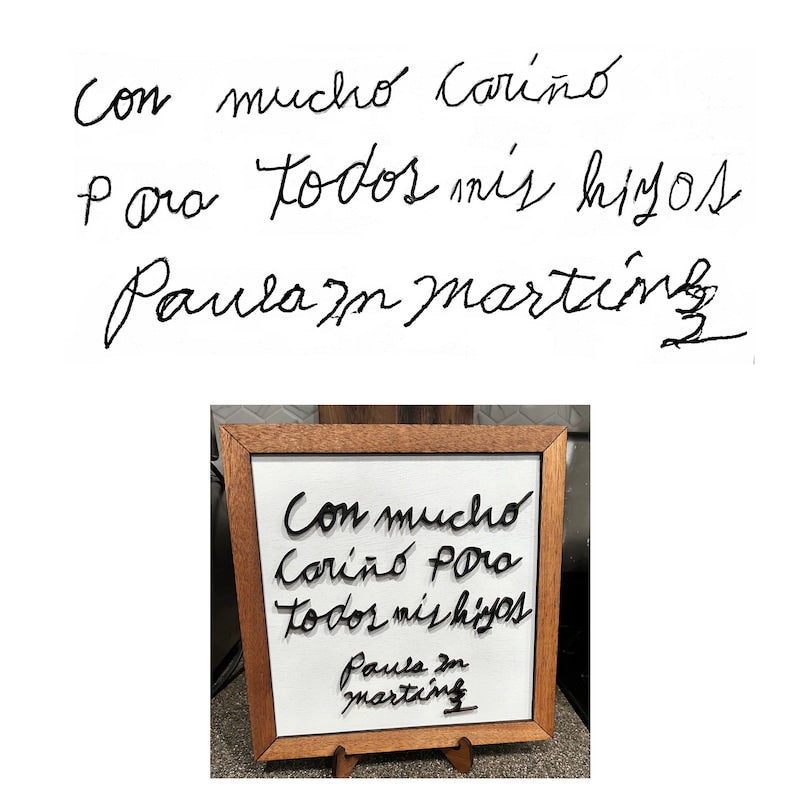 Con mucho Cariño
Para Todos mis hijos
Paula M Martínez
Con mucho
Cariño Para
Todos mis hijos
Paula M
Martínez